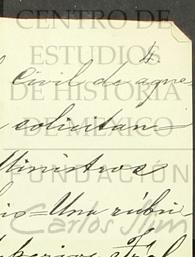 CENTRO DE
ESTUDIOS
Civil de aque
DE HISTORIA
solicitan
DE MÉXICO
Ministros
FUNDACIÓN
Una rúbri
Carlos Slim